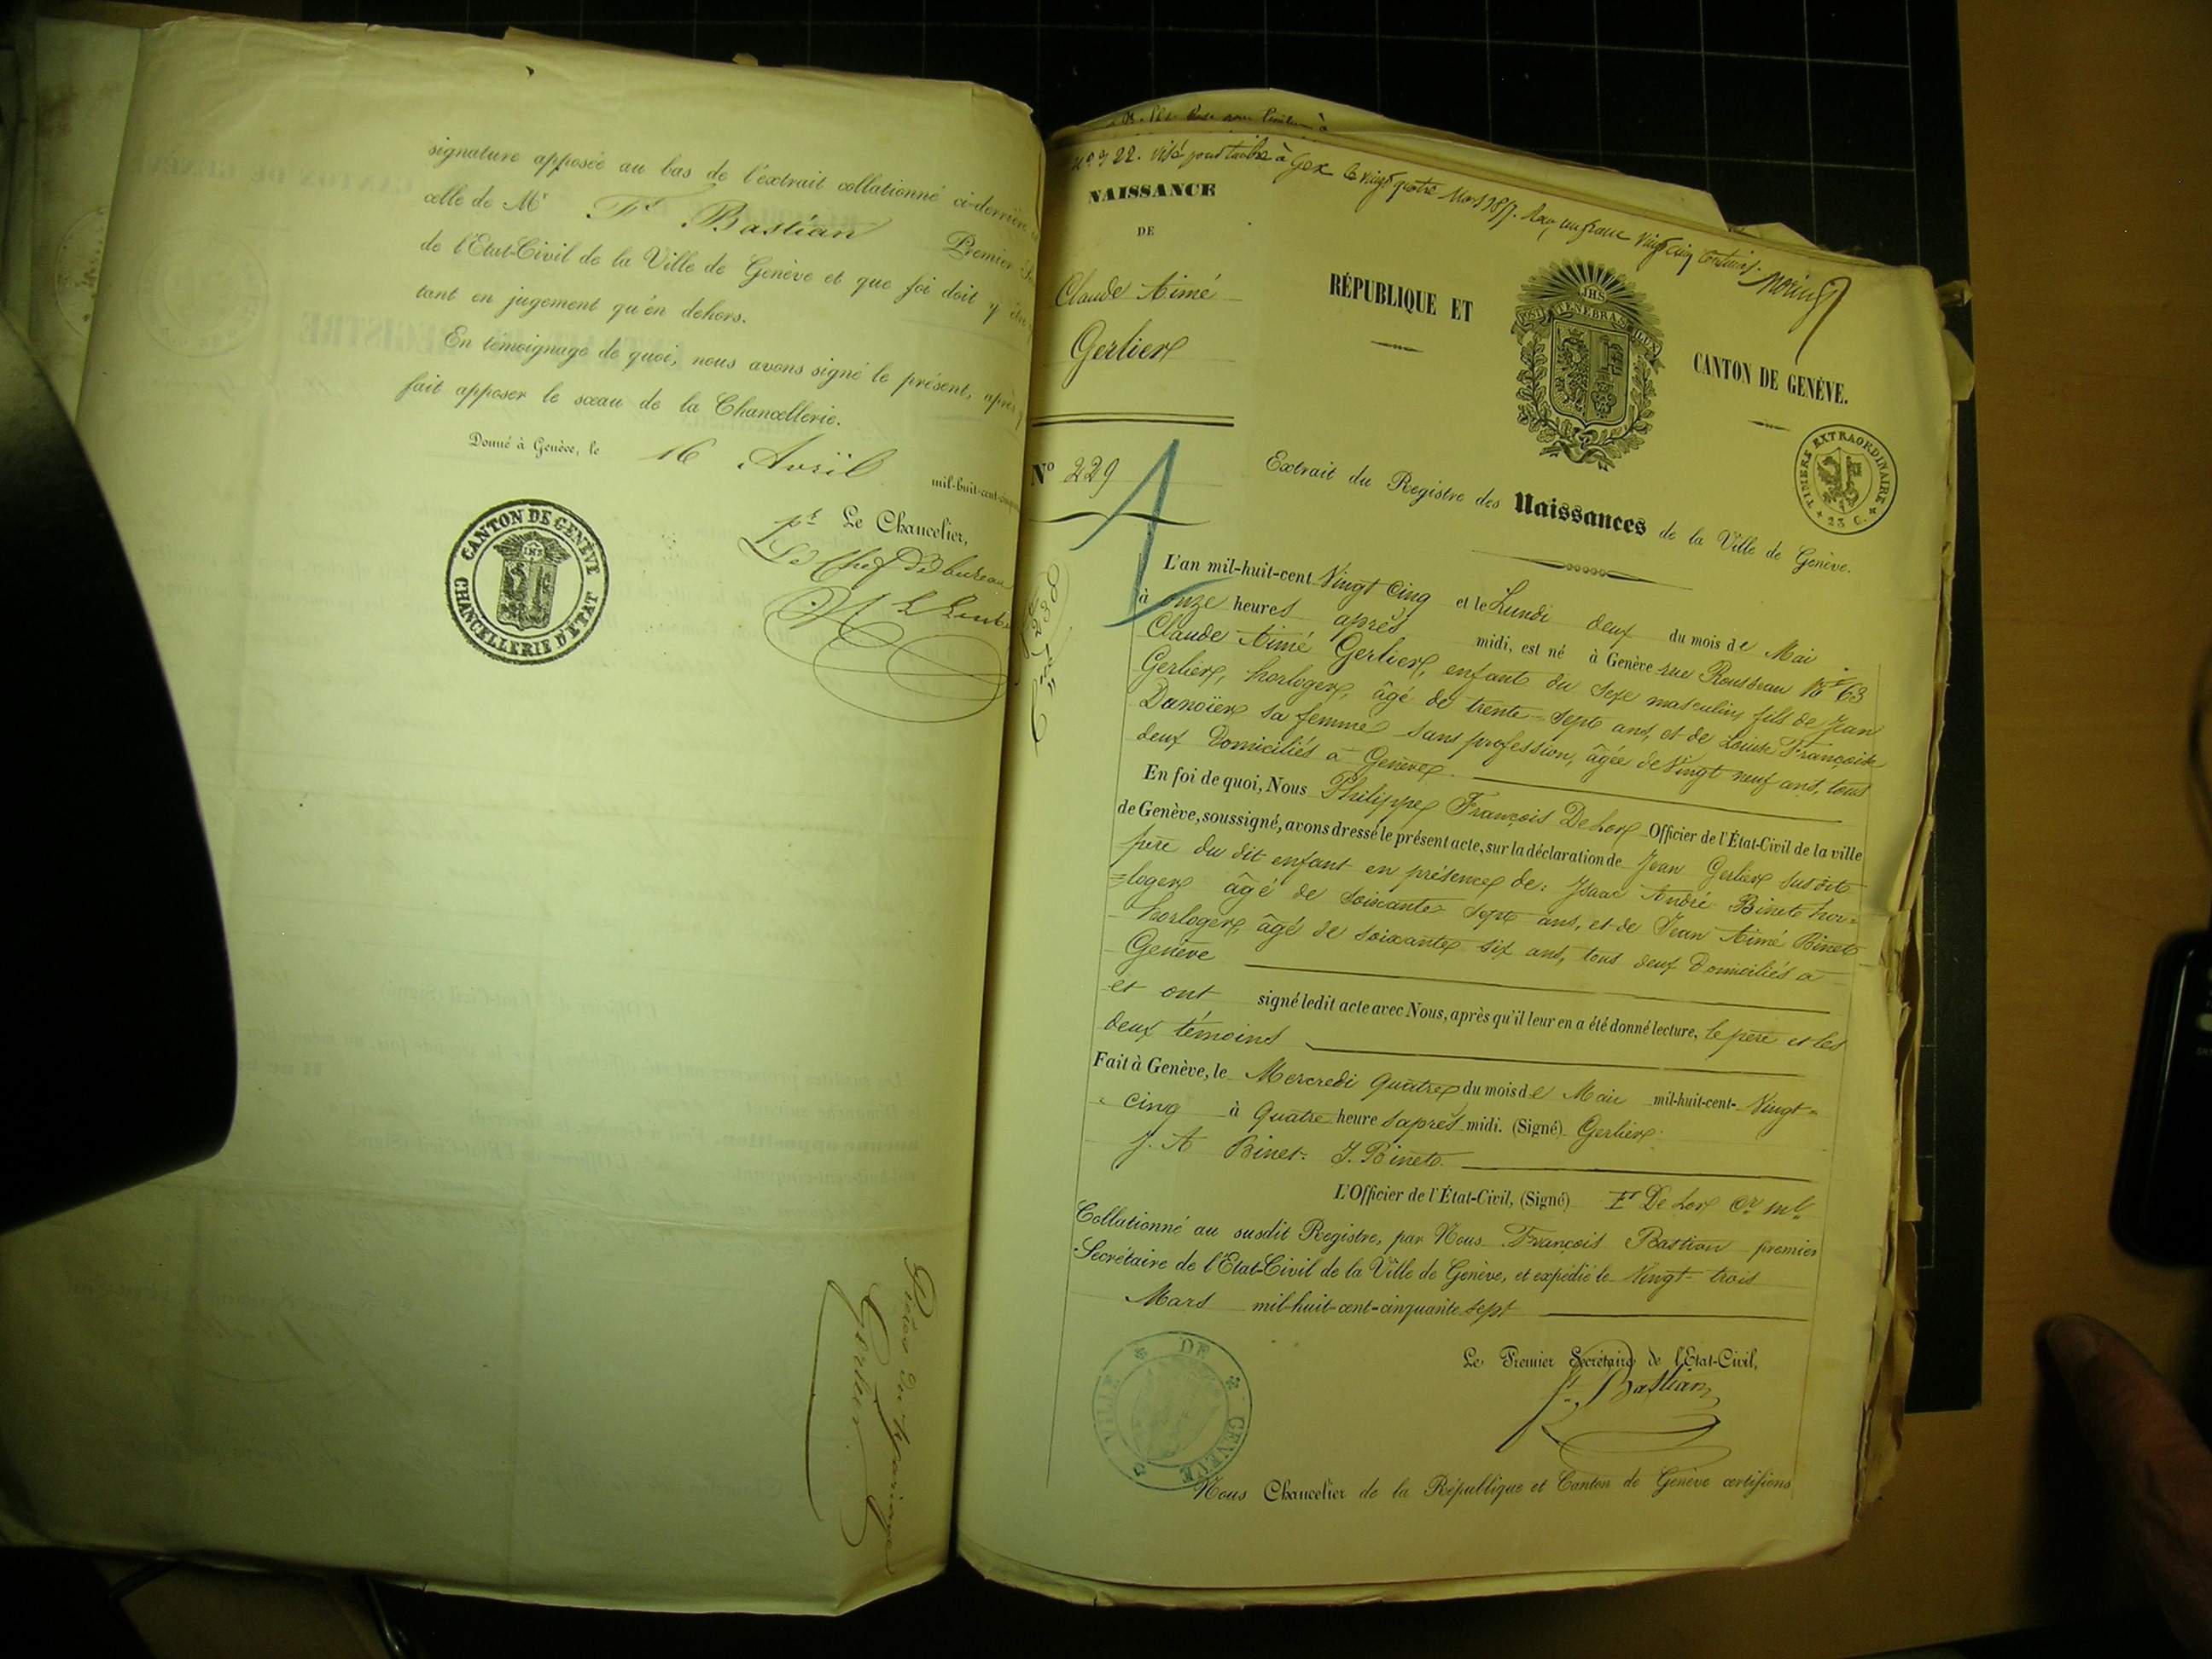 signature apposée au bas de l'extrait collationné ci-derrière
celle de Mr Fs Bastian Premier
de l'Etat-Civil de la Ville de Genève et que foi doit y
tant en jugement qu'en dehors.
En témoignage de quoi, nous avons signé le présent, après
fait apposer le sceau de la Chancellerie.
Donné à Genève, le 16 Avril mil-huit-cent-
pr Le Chancelier,
Le Chef de bureau
CANTON DE GENÈVE
CHANCELLERIE D'ETAT
Pièces du Mariage
Gerlier
22. visé pour timbre à Gex le vingt quatre Mars 1857. Reçu un franc vingt cinq centimes.
NAISSANCE
DE
Claude Aimé
Gerlier
No 229
RÉPUBLIQUE ET
CANTON DE GENÈVE.
JHS
POST TENEBRAS LUX
TIMBRE EXTRAORDINAIRE
25 C.
Extrait du Registre des Naissances de la Ville de Genève.
L'an mil-huit-cent Vingt Cinq et le Lundi deux du mois de Mai
à onze heures après midi, est né à Genève rue Rousseau No 63
Claude Aimé Gerlier, enfant du sexe masculin, fils de Jean
Gerlier, horloger, âgé de trente-sept ans, et de Louise Françoise
Danoier sa femme sans profession, âgée de Vingt neuf ans, tous
deux Domiciliés à Genève.
En foi de quoi, Nous Philippe François DeLor Officier de l'État-Civil de la ville
de Genève, soussigné, avons dressé le présent acte, sur la déclaration de Jean Gerlier susdit
père du dit enfant en présence de: Isaac André Binet hor=
=loger âgé de soixante-sept ans, et de Jean Aimé Binet
horloger, âgé de soixante-six ans, tous deux Domiciliés à
Genève
et ont signé ledit acte avec Nous, après qu'il leur en a été donné lecture, le père et les
deux témoins
Fait à Genève, le Mercredi Quatre du mois de Mai mil-huit-cent-Vingt-
cinq à Quatre heures après midi. (Signé) Gerlier.
J. A Binet. J. Binet.
L'Officier de l'État-Civil, (Signé) Fs DeLor
Collationné au susdit Registre, par Nous François Bastian premier
Secrétaire de l'Etat-Civil de la Ville de Genève, et expédié le Vingt-trois
Mars mil-huit-cent-cinquante sept
Le Premier Secrétaire de l'Etat-Civil,
Fs Bastian
VILLE DE GENEVE
Nous Chancelier de la République et Canton de Genève certifions